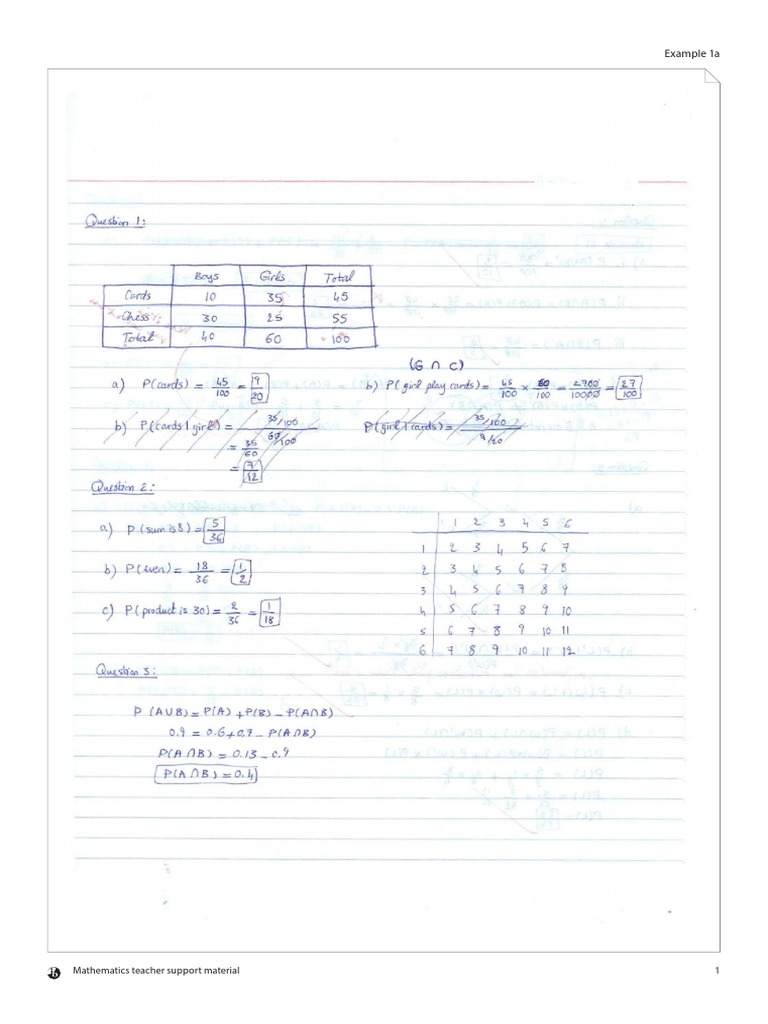 Example 1a
Question 1:
Boys Girls Total
Cards 10 35 45
Chess 30 25 55
Total 40 60 100
(G ∩ C)
a) P(cards) = 45/100 = 9/20 b) P(girl play cards) = 45/100 × 60/100 = 2700/10000 = 27/100
b) P(cards | girl) = 35/100 / 60/100 P(girl | cards) = 35/100 / 9/20
= 35/60
= 7/12
Question 2:
a) P(sum is 8) = 5/36
b) P(even) = 18/36 = 1/2
c) P(product is 30) = 2/36 = 1/18
1 2 3 4 5 6
1 2 3 4 5 6 7
2 3 4 5 6 7 8
3 4 5 6 7 8 9
4 5 6 7 8 9 10
5 6 7 8 9 10 11
6 7 8 9 10 11 12
Question 3:
P(A∪B) = P(A) + P(B) – P(A∩B)
0.9 = 0.6 + 0.7 – P(A∩B)
P(A∩B) = 0.13 – 0.9
P(A∩B) = 0.4
Mathematics teacher support material 1